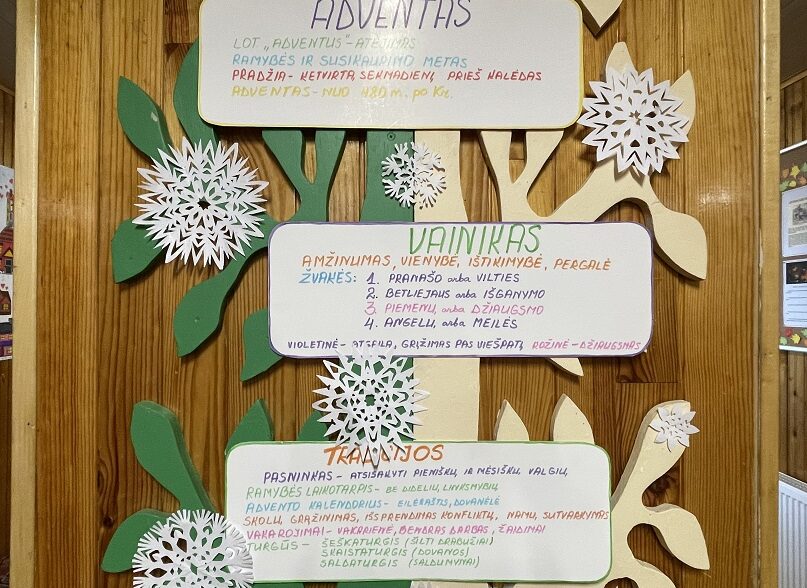 ADVENTAS
LOT „ADVENTUS" - ATĖJIMAS
RAMYBĖS IR SUSIKAUPIMO METAS
PRADŽIA - KETVIRTĄ SEKMADIENĮ PRIEŠ KALĖDAS
ADVENTAS - NUO 480 m. po Kr.
VAINIKAS
AMŽINUMAS, VIENYBĖ, IŠTIKIMYBĖ, PERGALĖ
ŽVAKĖS: 1. PRANAŠO arba VILTIES
2. BETLIEJAUS arba IŠGANYMO
3. PIEMENŲ arba DŽIAUGSMO
4. ANGELŲ arba MEILĖS
VIOLETINĖ - ATGAILA, GRĮŽIMAS PAS VIEŠPATĮ, ROŽINĖ - DŽIAUGSMAS
TRADICIJOS
PASNINKAS - ATSISAKYTI PIENIŠKŲ IR MĖSIŠKŲ VALGIŲ,
RAMYBĖS LAIKOTARPIS - BE DIDELIŲ LINKSMYBIŲ,
ADVENTO KALENDORIUS - EILĖRAŠTIS, DOVANĖLĖ
SKOLŲ GRĄŽINIMAS, IŠSPRENDIMAS KONFLIKTŲ, NAMŲ SUTVARKYMAS
VAKAROJIMAI - VAKARIENĖ, BENDRAS DARBAS, ŽAIDIMAI
TURGŪS - ŠEŠKATURGIS (ŠILTI DRABUŽIAI)
SKAISTATURGIS (DOVANOS)
SALDATURGIS (SALDUMYNAI)